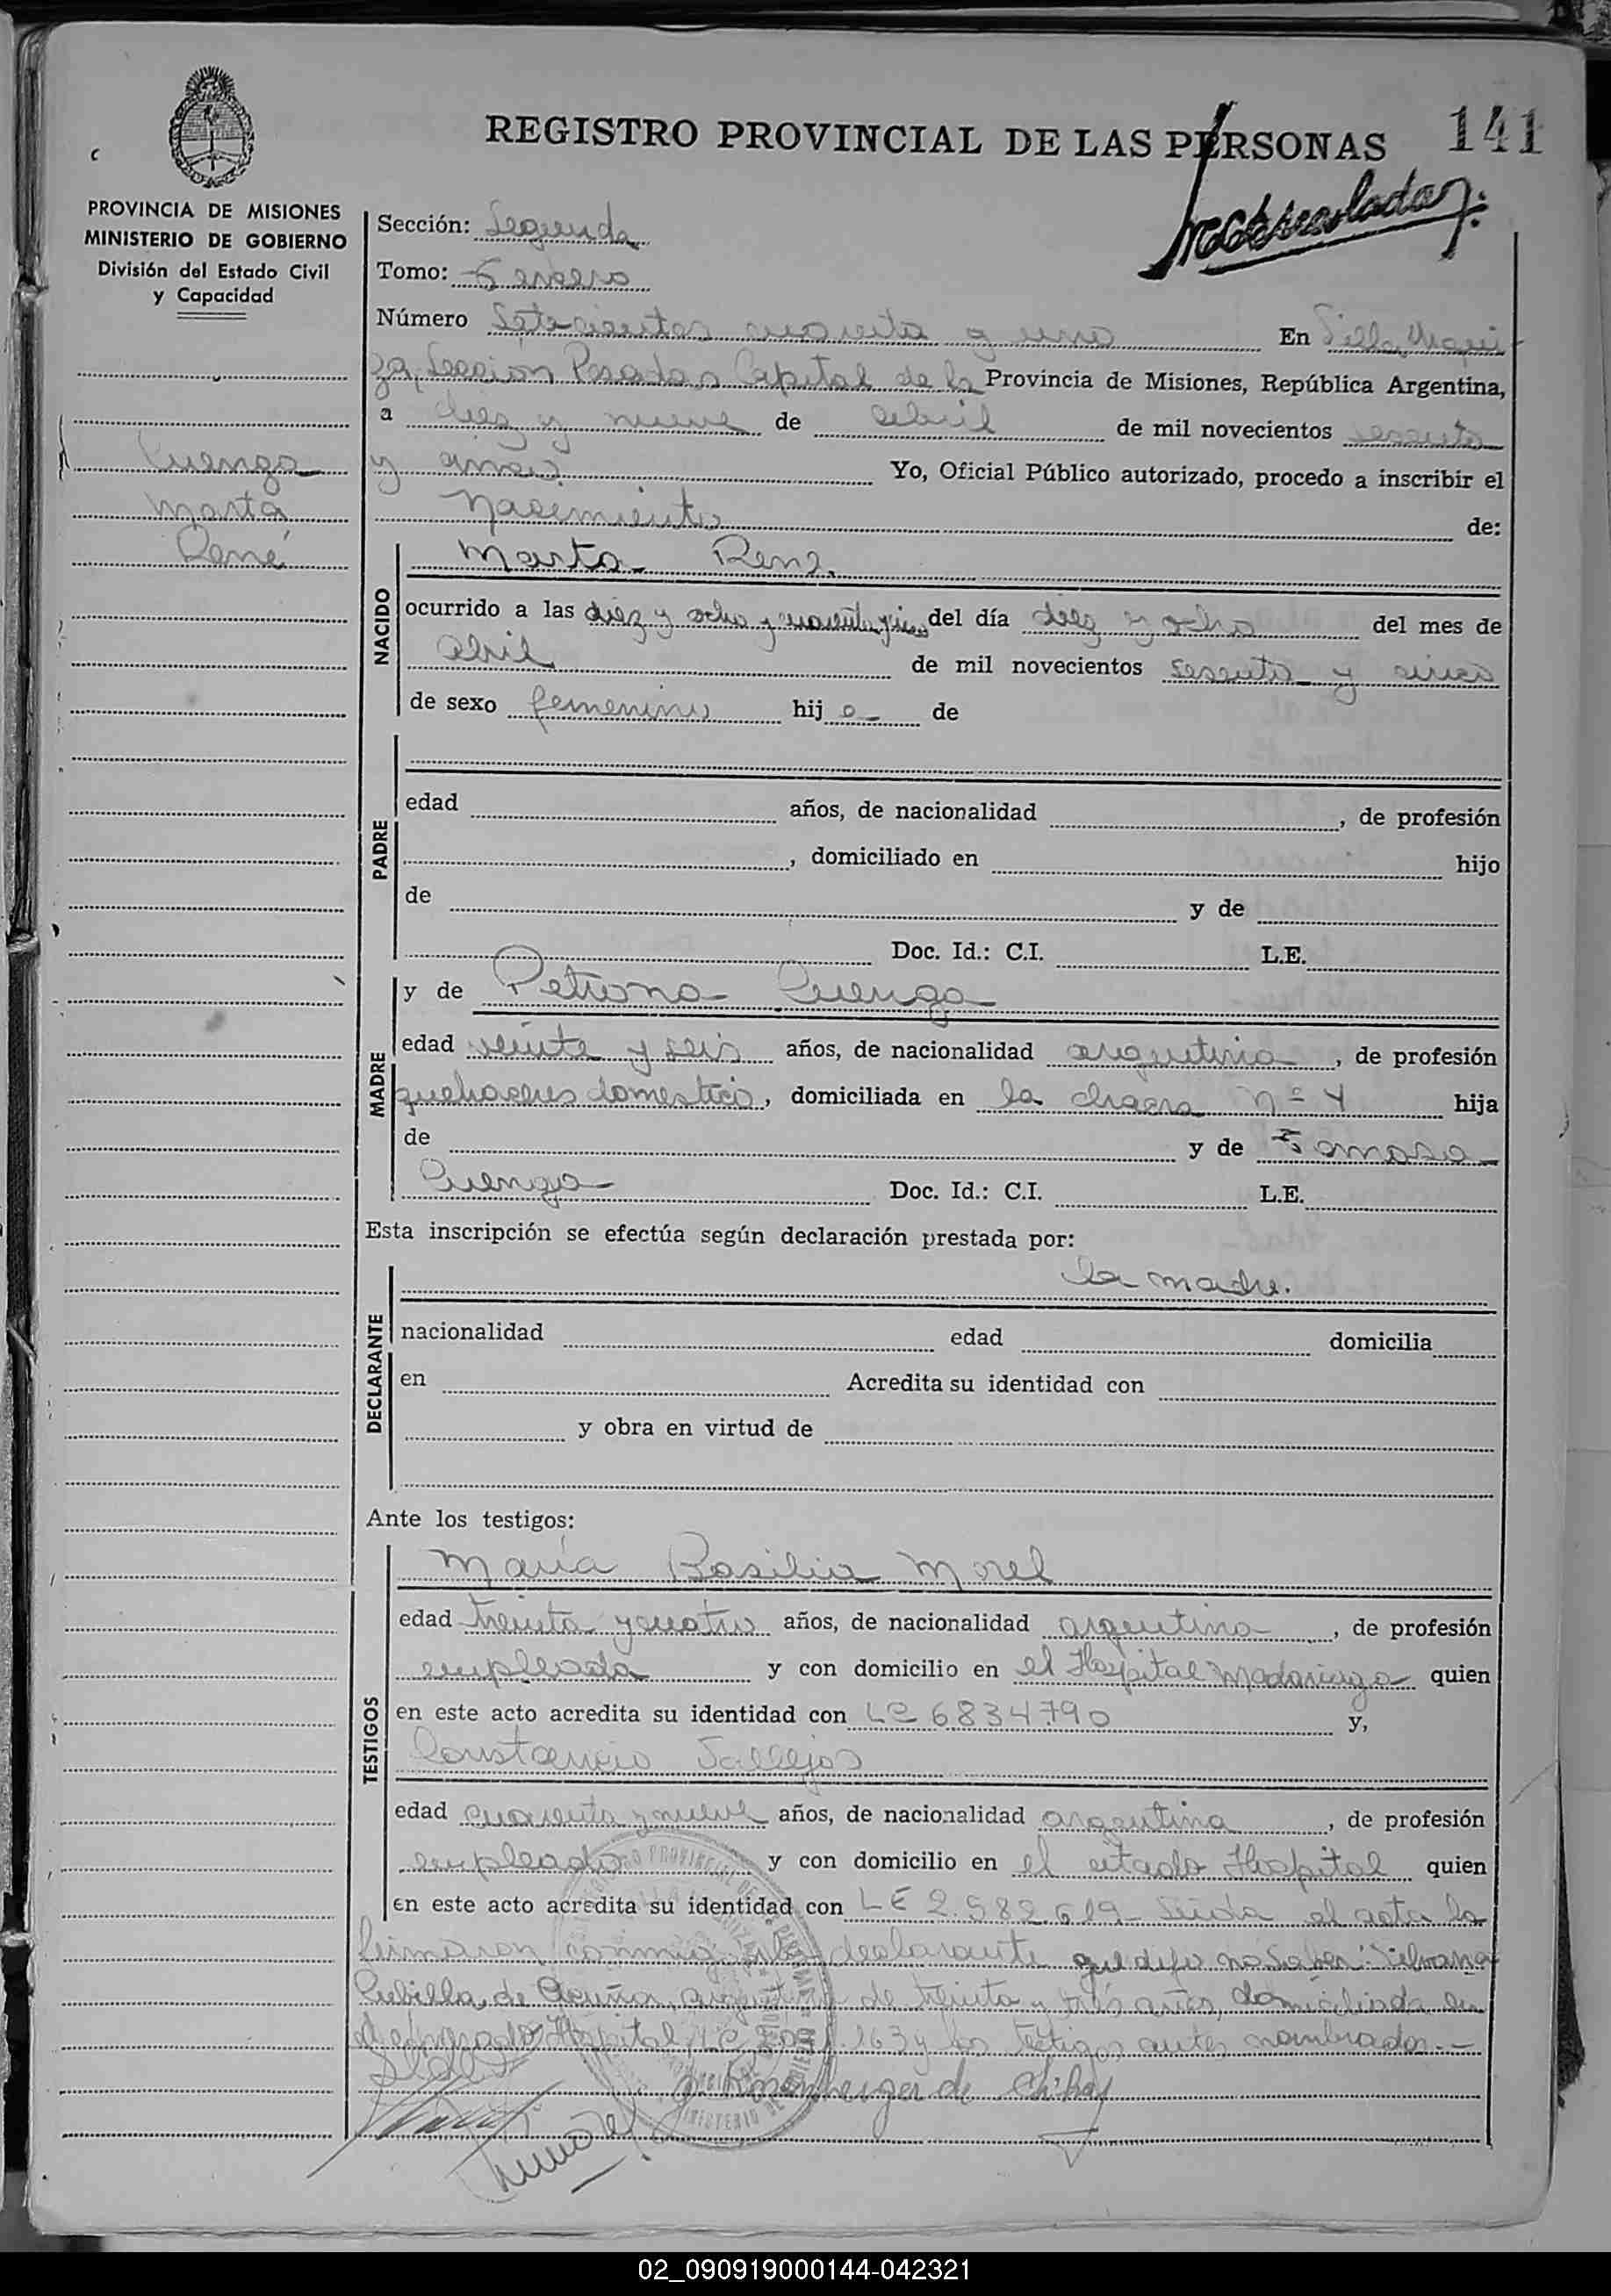 REGISTRO PROVINCIAL DE LAS PERSONAS 141
PROVINCIA DE MISIONES
MINISTERIO DE GOBIERNO
División del Estado Civil
y Capacidad
Cuenga
Marta
René
Sección: Segunda
Tomo: Tercero
Número Setecientos cuarenta y uno En Villa Urqui
za, Sección Posadas Capital de la Provincia de Misiones, República Argentina,
a diez y nueve de abril de mil novecientos sesenta
y cinco Yo, Oficial Público autorizado, procedo a inscribir el
Nacimiento de:
NACIDO
Marta René
ocurrido a las diez y ocho y cuarenta y cinco del día diez y ocho del mes de
abril de mil novecientos sesenta y cinco
de sexo femenino hij a de
PADRE
edad años, de nacionalidad , de profesión
, domiciliado en hijo
de y de
Doc. Id.: C.I. L.E.
MADRE
y de Petrona Cuenga
edad veinte y seis años, de nacionalidad argentina , de profesión
quehaceres domestico, domiciliada en la chacra Nº 4 hija
de y de Tomasa
Cuenga Doc. Id.: C.I. L.E.
Esta inscripción se efectúa según declaración prestada por:
la madre.
DECLARANTE
nacionalidad edad domicilia
en Acredita su identidad con
y obra en virtud de
Ante los testigos:
TESTIGOS
Maria Basilia Morel
edad treinta y cuatro años, de nacionalidad argentina , de profesión
empleada y con domicilio en el Hospital Madariaga quien
en este acto acredita su identidad con LC 6834790 y,
Constancio Vallejos
edad cuarenta y nueve años, de nacionalidad argentina , de profesión
empleado y con domicilio en el citado Hospital quien
en este acto acredita su identidad con LE 2.582.619 Leida el acta la
firmaron conmigo declarante que dijo no saber: Silvana
Cubilla de Acuña, argentina de treinta y tres años, domiciliada en
el Hospital, LC 163 y los testigos antes nombrados.-
Rosenberger de Chihas
02_090919000144-042321